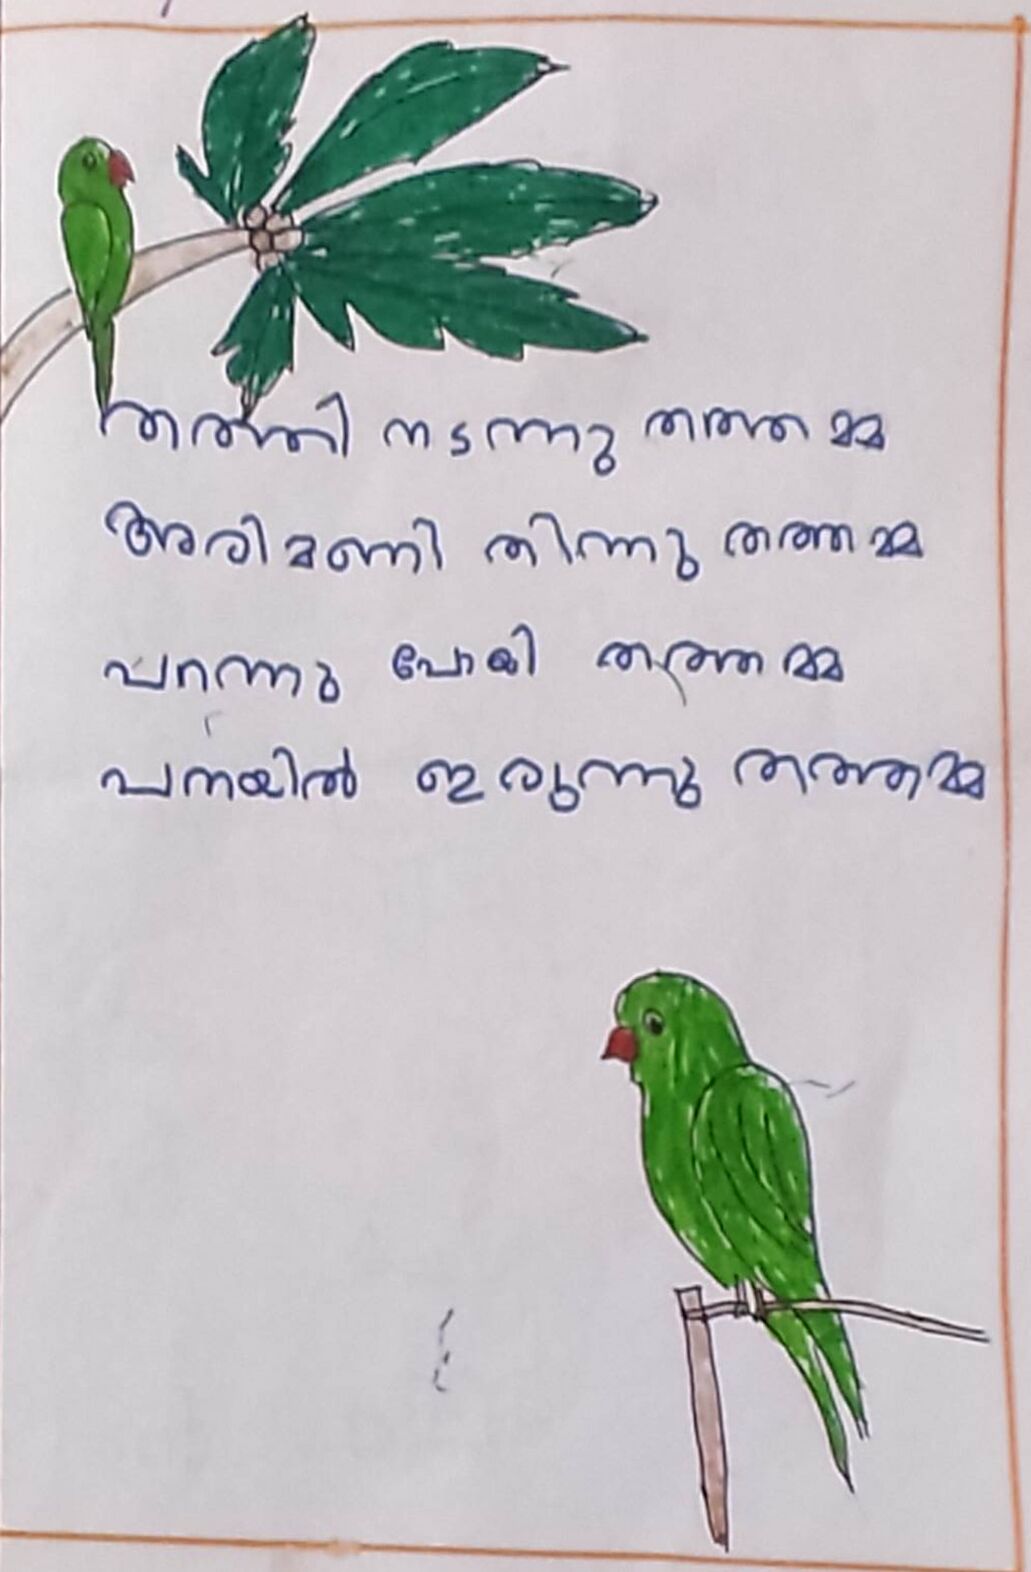 തത്തി നടന്നു തത്തമ്മ
അരിമണി തിന്നു തത്തമ്മ
പറന്നു പോയി തത്തമ്മ
പനയിൽ ഇരുന്നു തത്തമ്മ